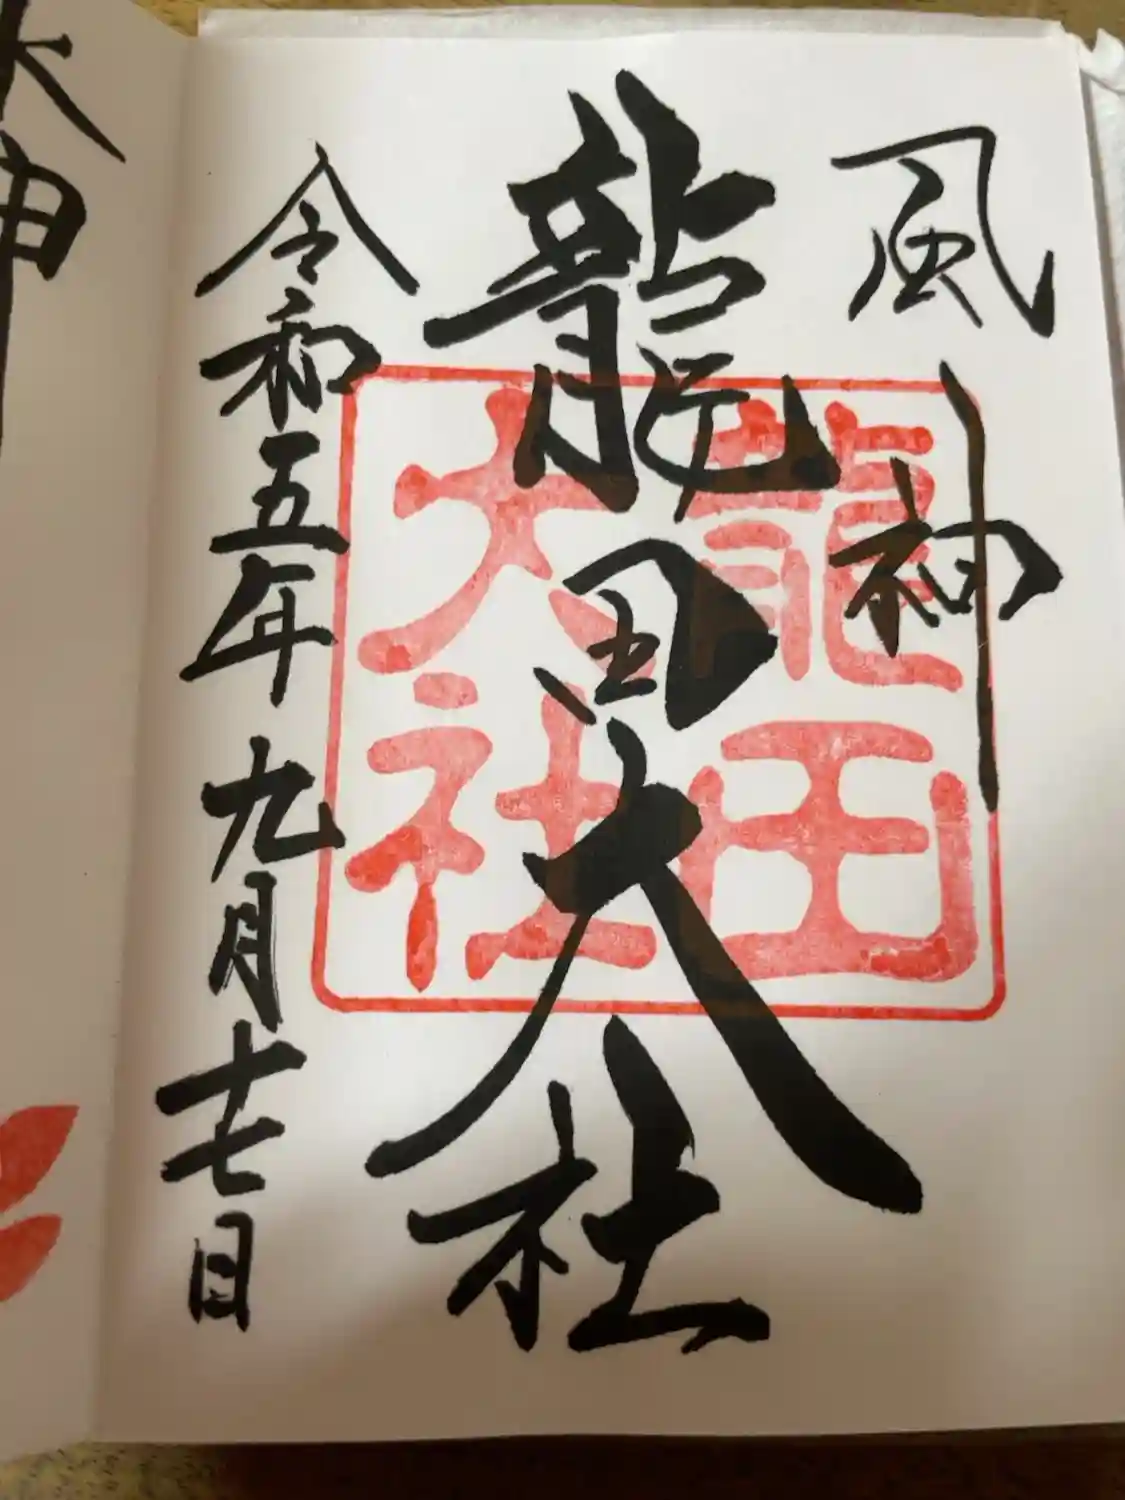 風神
龍田大社
龍田
大社
令和五年九月十七日
大神